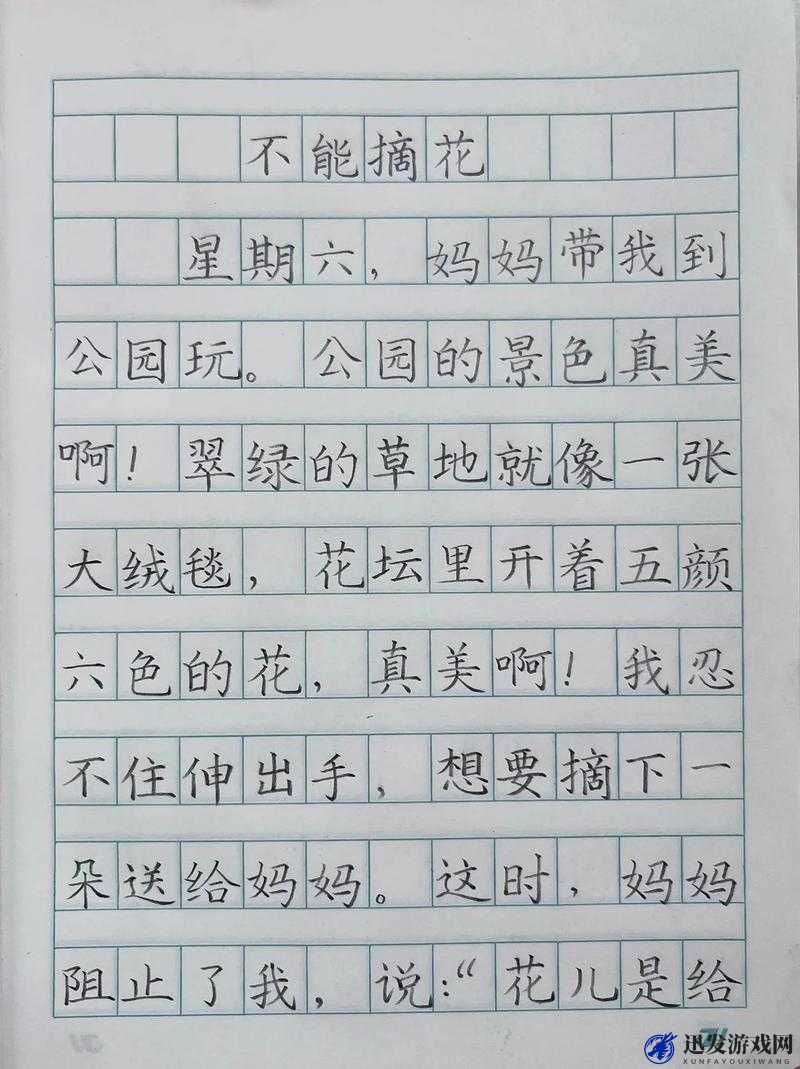 不能摘花
星期六，妈妈带我到
公园玩。公园的景色真美
啊！翠绿的草地就像一张
大绒毯，花坛里开着五颜
六色的花，真美啊！我忍
不住伸出手，想要摘下一
朵送给妈妈。这时，妈妈
阻止了我，说：“花儿是给
迅发游戏网
XUNFAYOUXIWANG